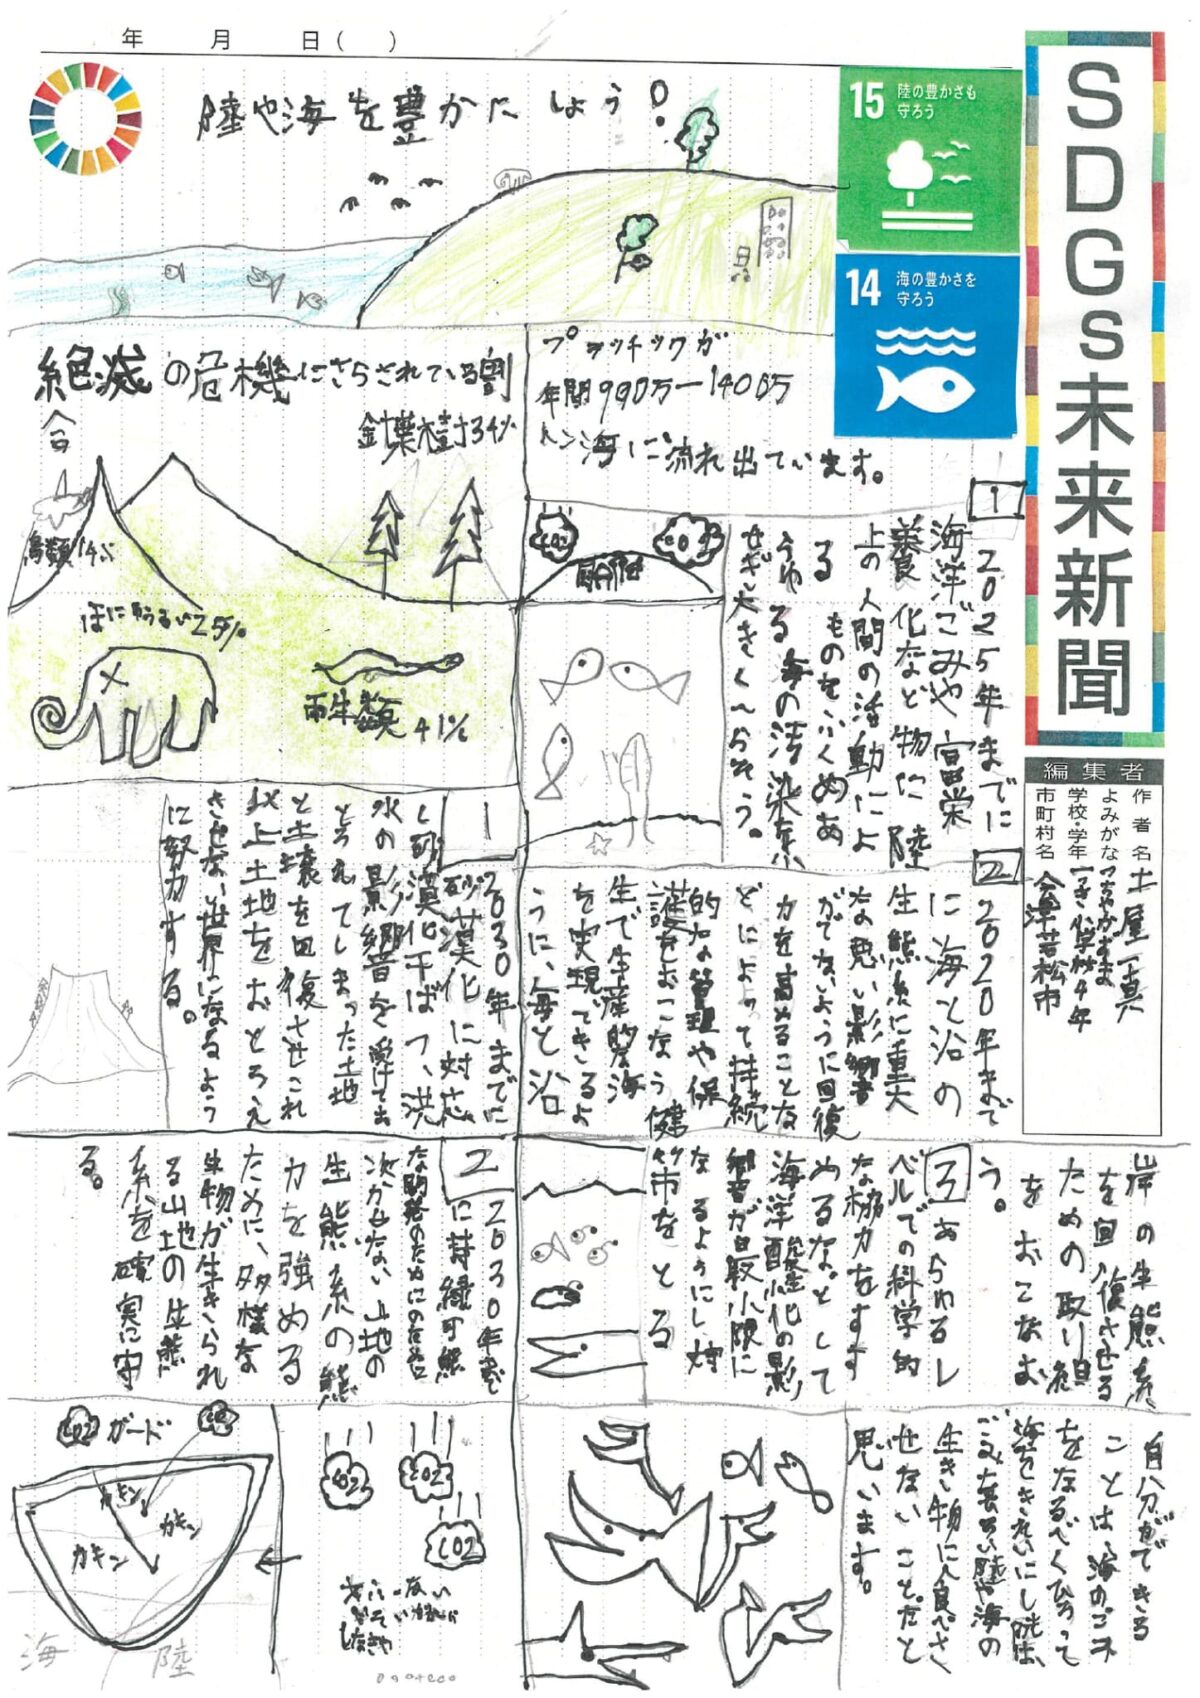 年 月 日( )
SDGs未来新聞
陸や海を豊かにしよう!
15 陸の豊かさも
守ろう
14 海の豊かさを
守ろう
編集者
作者名 土屋一真
よみがな つちやかずま
学校・学年 一き小学校4年
市町村名 会津若松市
絶滅の危機にさらされている割
合
針葉樹34%
鳥類14%
ほにゅうるい25%
両生類 41%
プラッチックが
年間990万ー1400万
トン海に流れ出ています。
1
2025年までに
海洋ごみや富栄
養化など物に陸
上の人間の活動によ
る
ものをふくめあ
らゆる海の汚染を
せぎ大きくへらそう。
CO2
CO2
2
2020年まで
に海と沿の
生態系に重大
な悪い影響
がでないように回復
力を高めることな
どによって持続
的な管理や保
護をおこなう健
生で生産的な海
を実現できるよ
うに、海と沿
岸の生態系
を回復させる
ための取り組
をおこなお
う。
3
あらゆるレ
ベルでの科学的
な協力をすす
めるな。として
海洋酸性化の影
響が最小限に
なるようにし、対
対策をとる
1
2030年までに
砂漠化に対応
し砂漠化干ばつ、洪
水の影響を受けてお
とろえてしまった土地
と土壌を回復させこれ
以上土地をおとろえ
させない世界になるよう
に努力する。
2
2030年まで
に持続可能
次かせない山地の
生態系の態
力を強める
ために、多様な
生物が生きられ
る山地の生態
系を確実に守
る。
自分ができる
ことは、海のゴミ
をなるべくひろって
生き物に食べさ
せないことだと
思います。
CO2 ガード CO2
カキン
カキン
カキン
海 陸
CO2
CO2
CO2